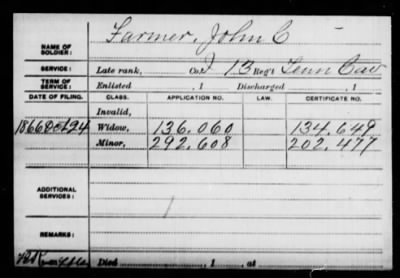 Farmer, John C
NAME OF SOLDIER:
SERVICE: Late rank, Co. I 13 Reg't Tenn Cav
TERM OF SERVICE: Enlisted , 1 Discharged , 1
DATE OF FILING. CLASS. APPLICATION NO. LAW. CERTIFICATE NO.
Invalid,
1866 Oct 24 Widow, 136.060 134.649
Minor, 292.608 202.477
ADDITIONAL SERVICES:
REMARKS:
Died , 1 , at